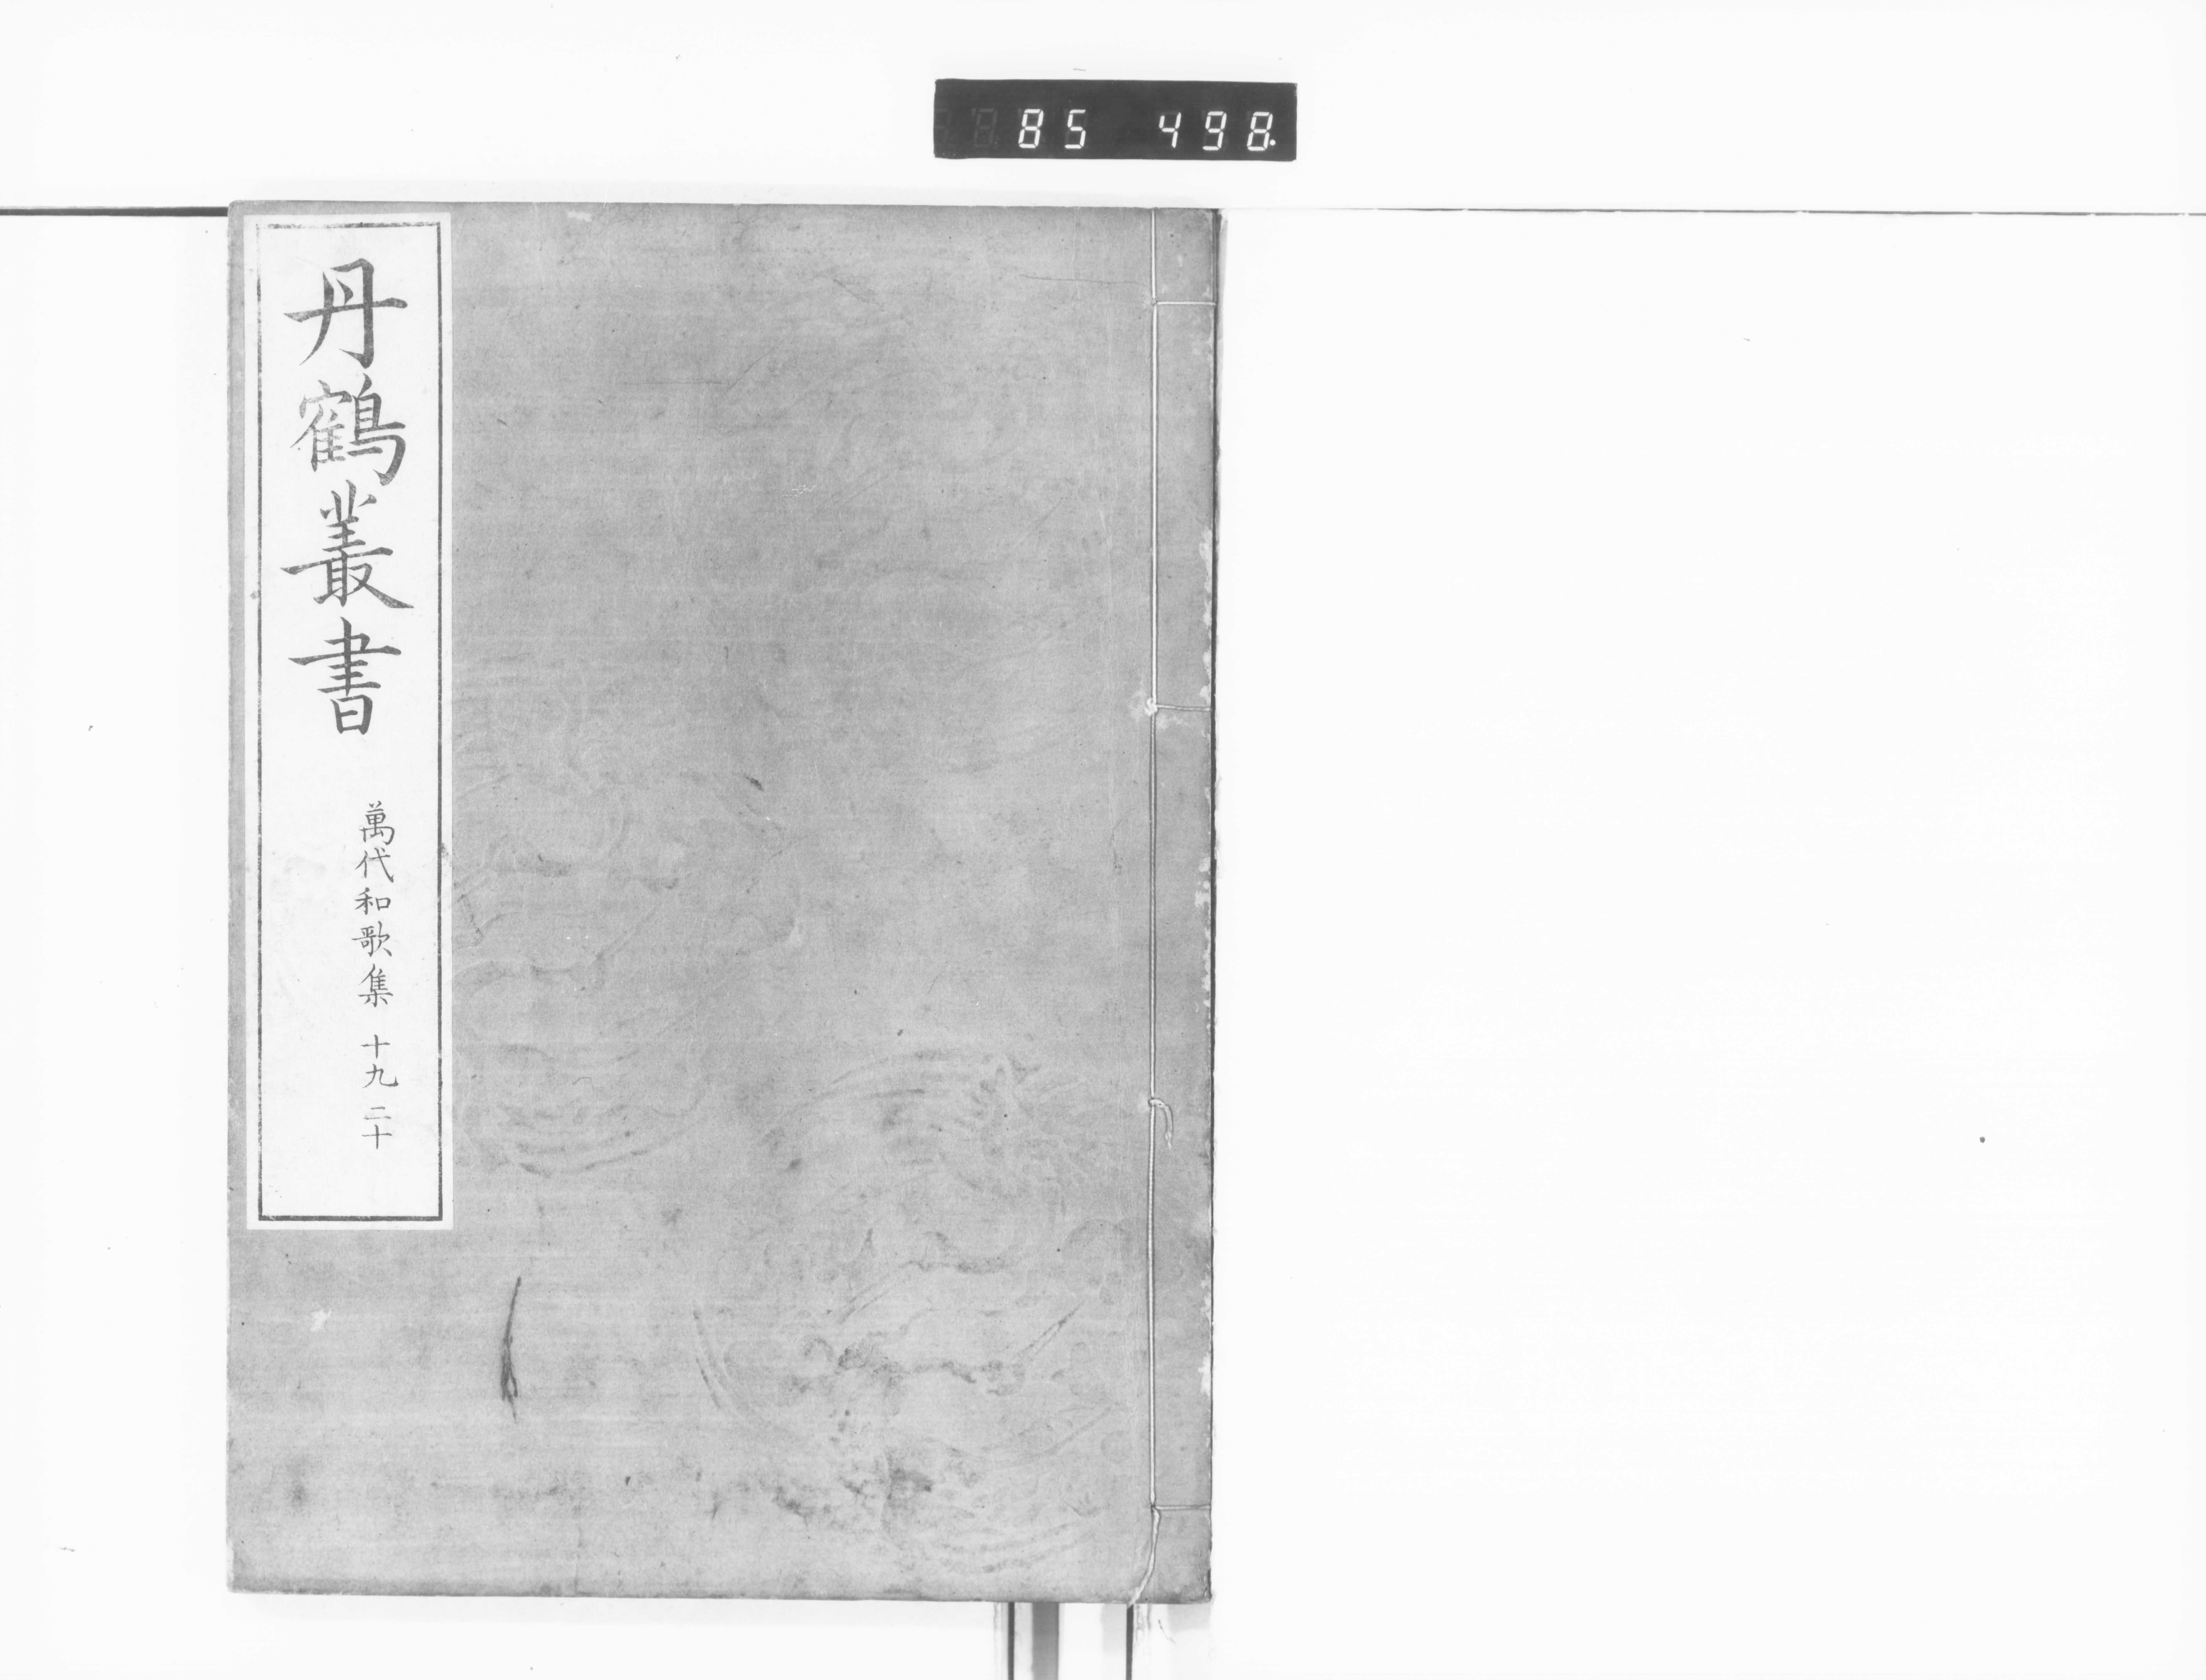 85 498.
丹鶴叢書
萬代和歌集 十九 二十